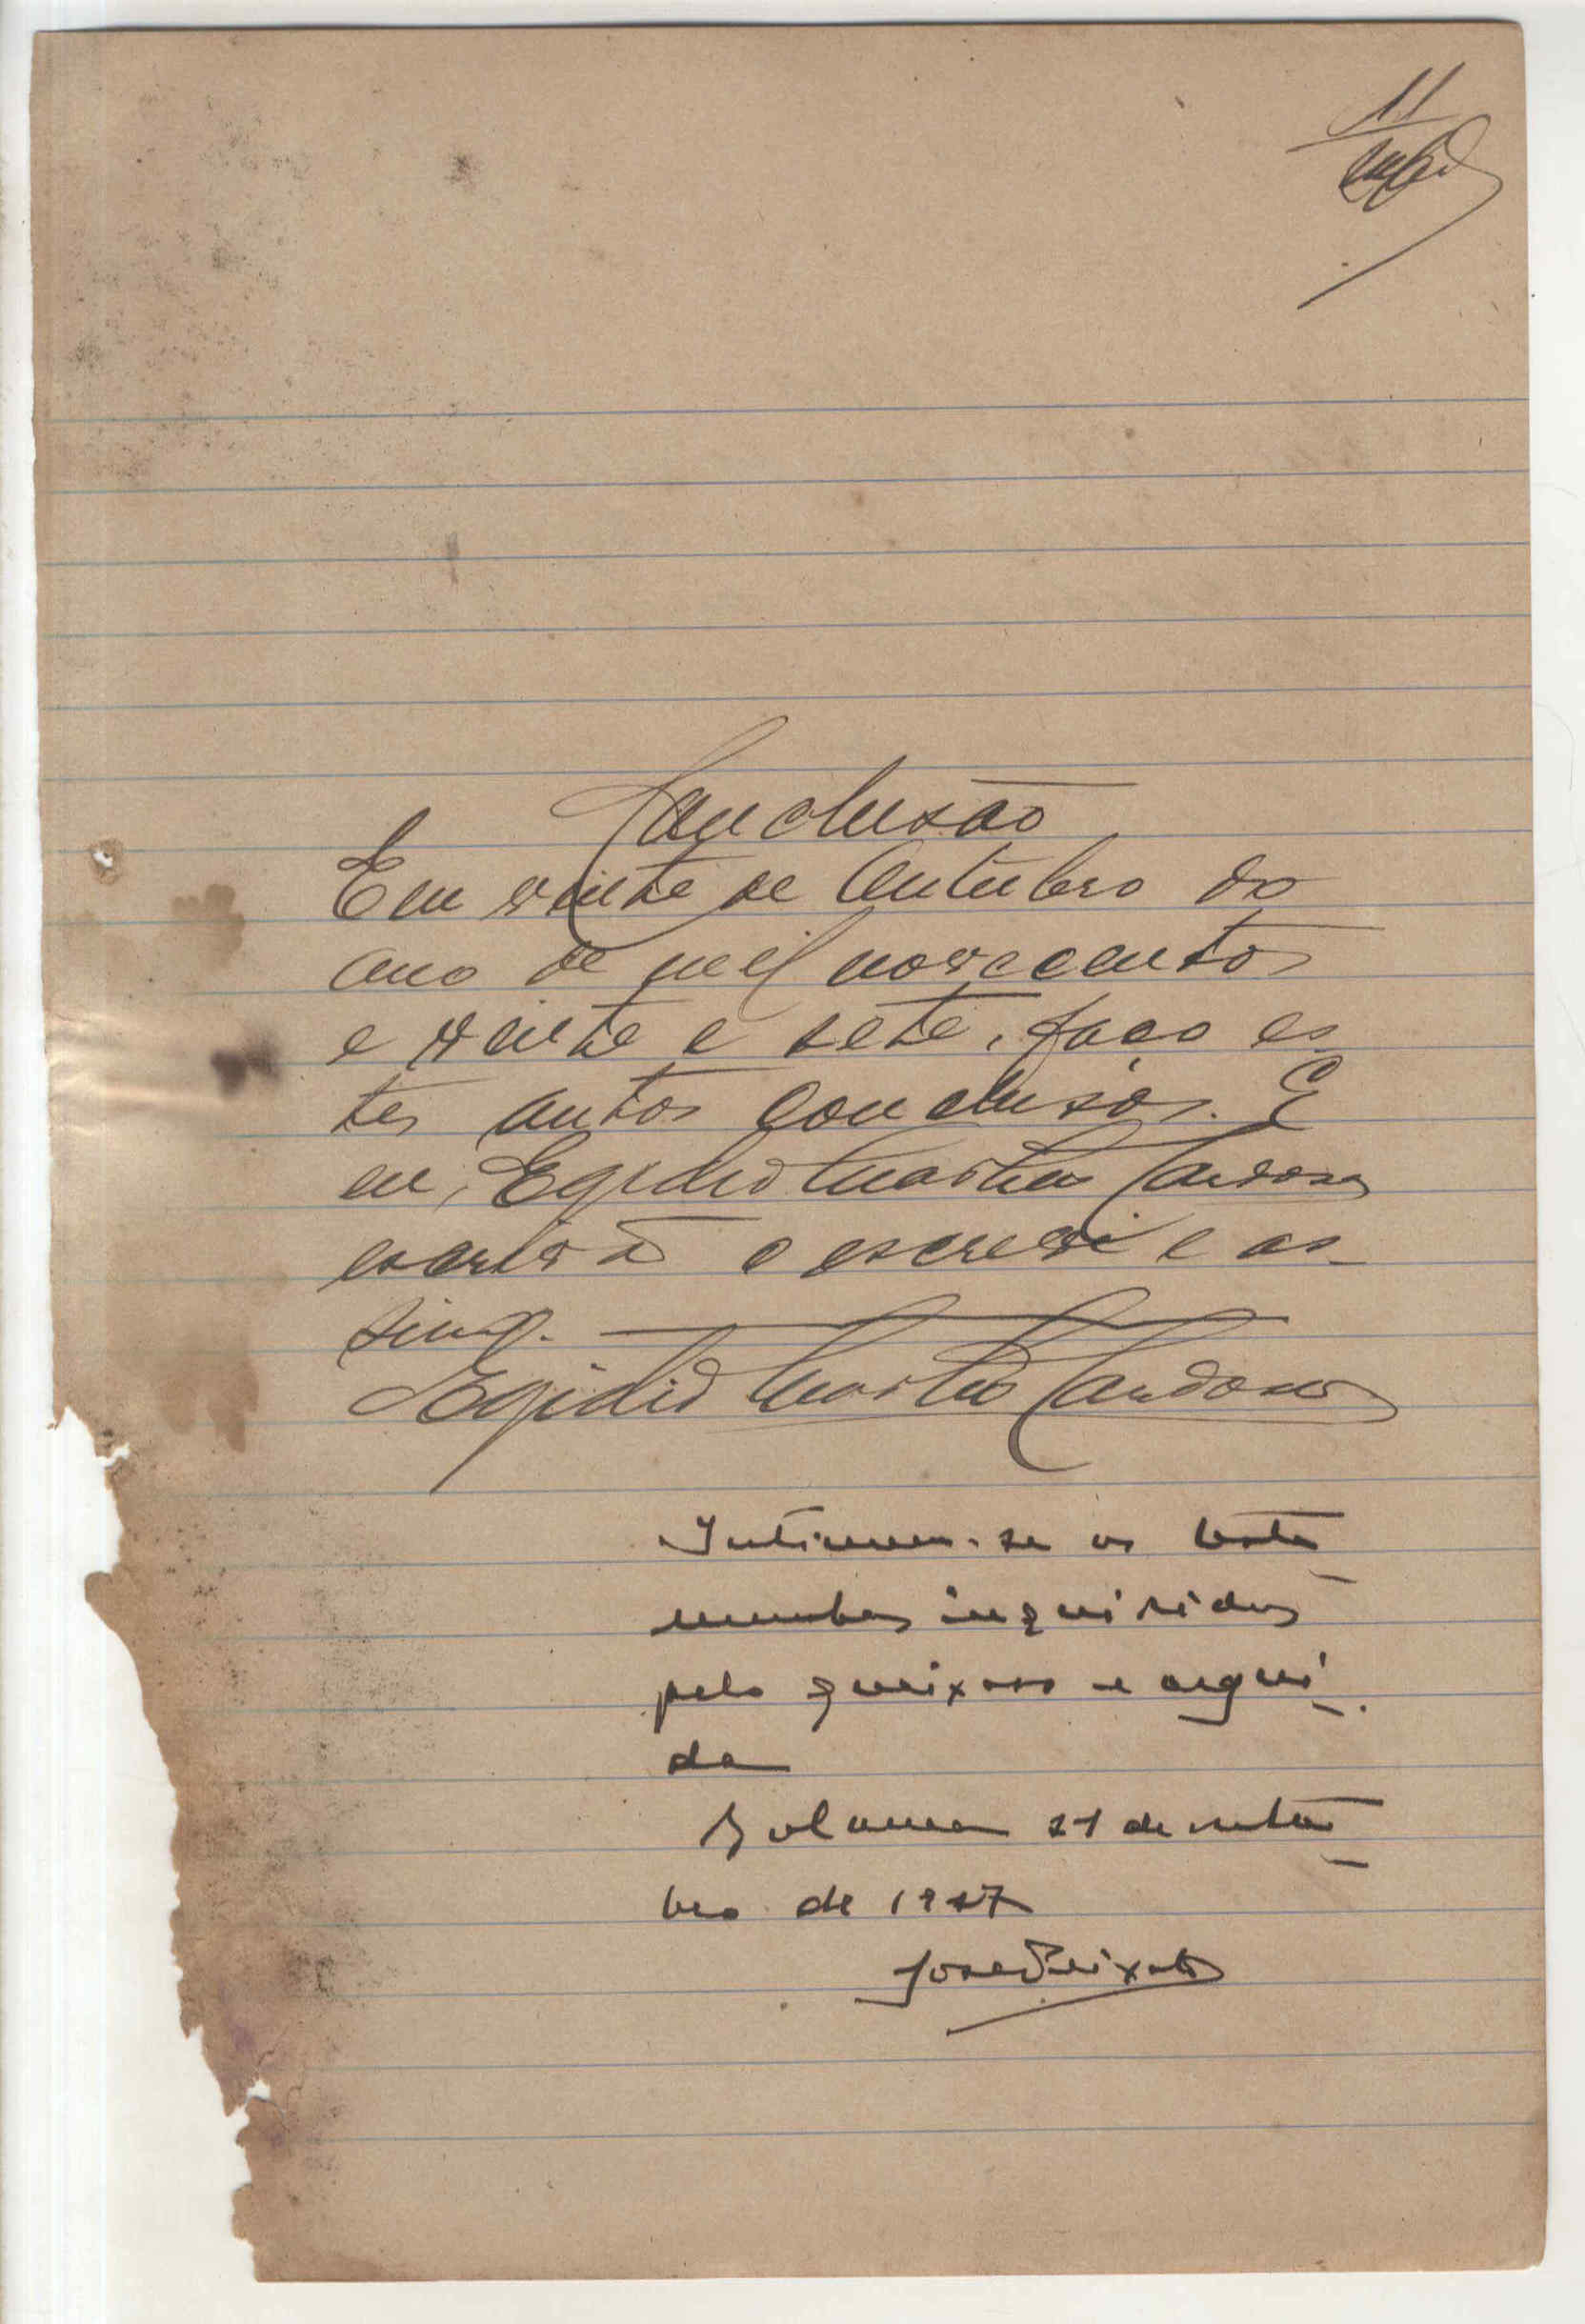 11
Conclusão
Em vinte de Outubro do
ano de mil novecentos
e vinte e sete, faço es
tes autos conclusos. E
eu, Egidio Martins Cardoso
escrivão o escrevi e as-
sino.
Egidio Martins Cardoso
Intimem-se as teste
munhas inqueridas
pelo queixoso e argui
da
Bolama 21 de outu
bro de 1927
José Peixoto